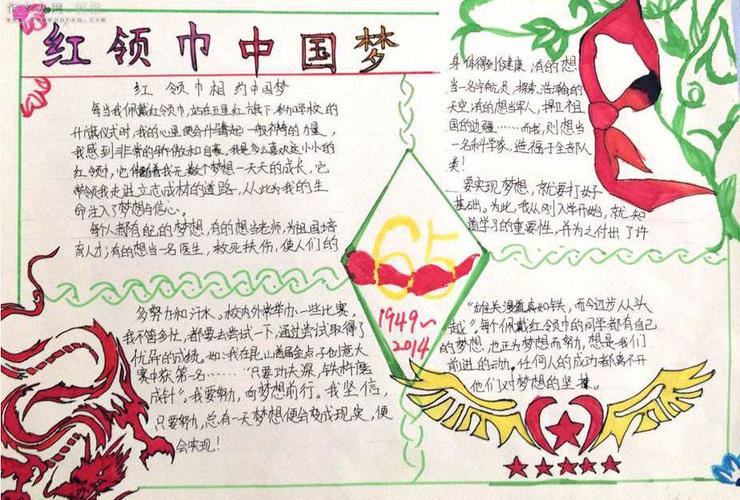 红领巾中国梦
红领巾相约中国梦
每当我佩戴红领巾,站在五星红旗下,参加学校的
升旗仪式时,我的心里便会升腾起一股神奇的力量,
我感到非常的骄傲和自豪。我是多么喜欢这小小的
红领巾,它伴随着我无数个梦想一天天的成长,它
带领我走进立志成材的道路,从此为我的生
命注入了梦想与信心。
每个人都有自己的梦想,有的想当老师,为祖国培
育人才;有的想当一名医生,救死扶伤,使人们的
身体得到健康,有的想
当一名宇航员,探索浩瀚的
天空,有的想当军人,捍卫祖
国的边疆……而我,则想当
一名科学家,造福于全部人
类!
要实现梦想,就要打好
基础。为此,我从刚入学开始,就知
道学习的重要性,并为之付出了许
多努力和汗水。校内外常举办一些比赛,
我不管多忙,都要去尝试一下,通过尝试取得了
优异的成绩。如:我在昆山首届金点子创意大
赛中获第一名……“只要功夫深,铁杵磨
成针”。我要努力,向梦想前行。我坚信,
只要努力,总有一天梦想便会变成现实,便
会实现!
65
1949~
2014
“雄关漫道真如铁,而今迈步从头
越”,每个佩戴红领巾的同学都有自己
的梦想,也正为梦想而努力,想是我们
前进的动力。任何人的成功都离不开
他们对梦想的坚